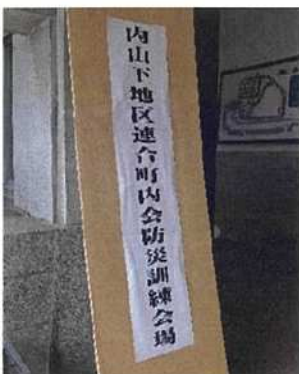 内山下地区連合町内会防災訓練会場